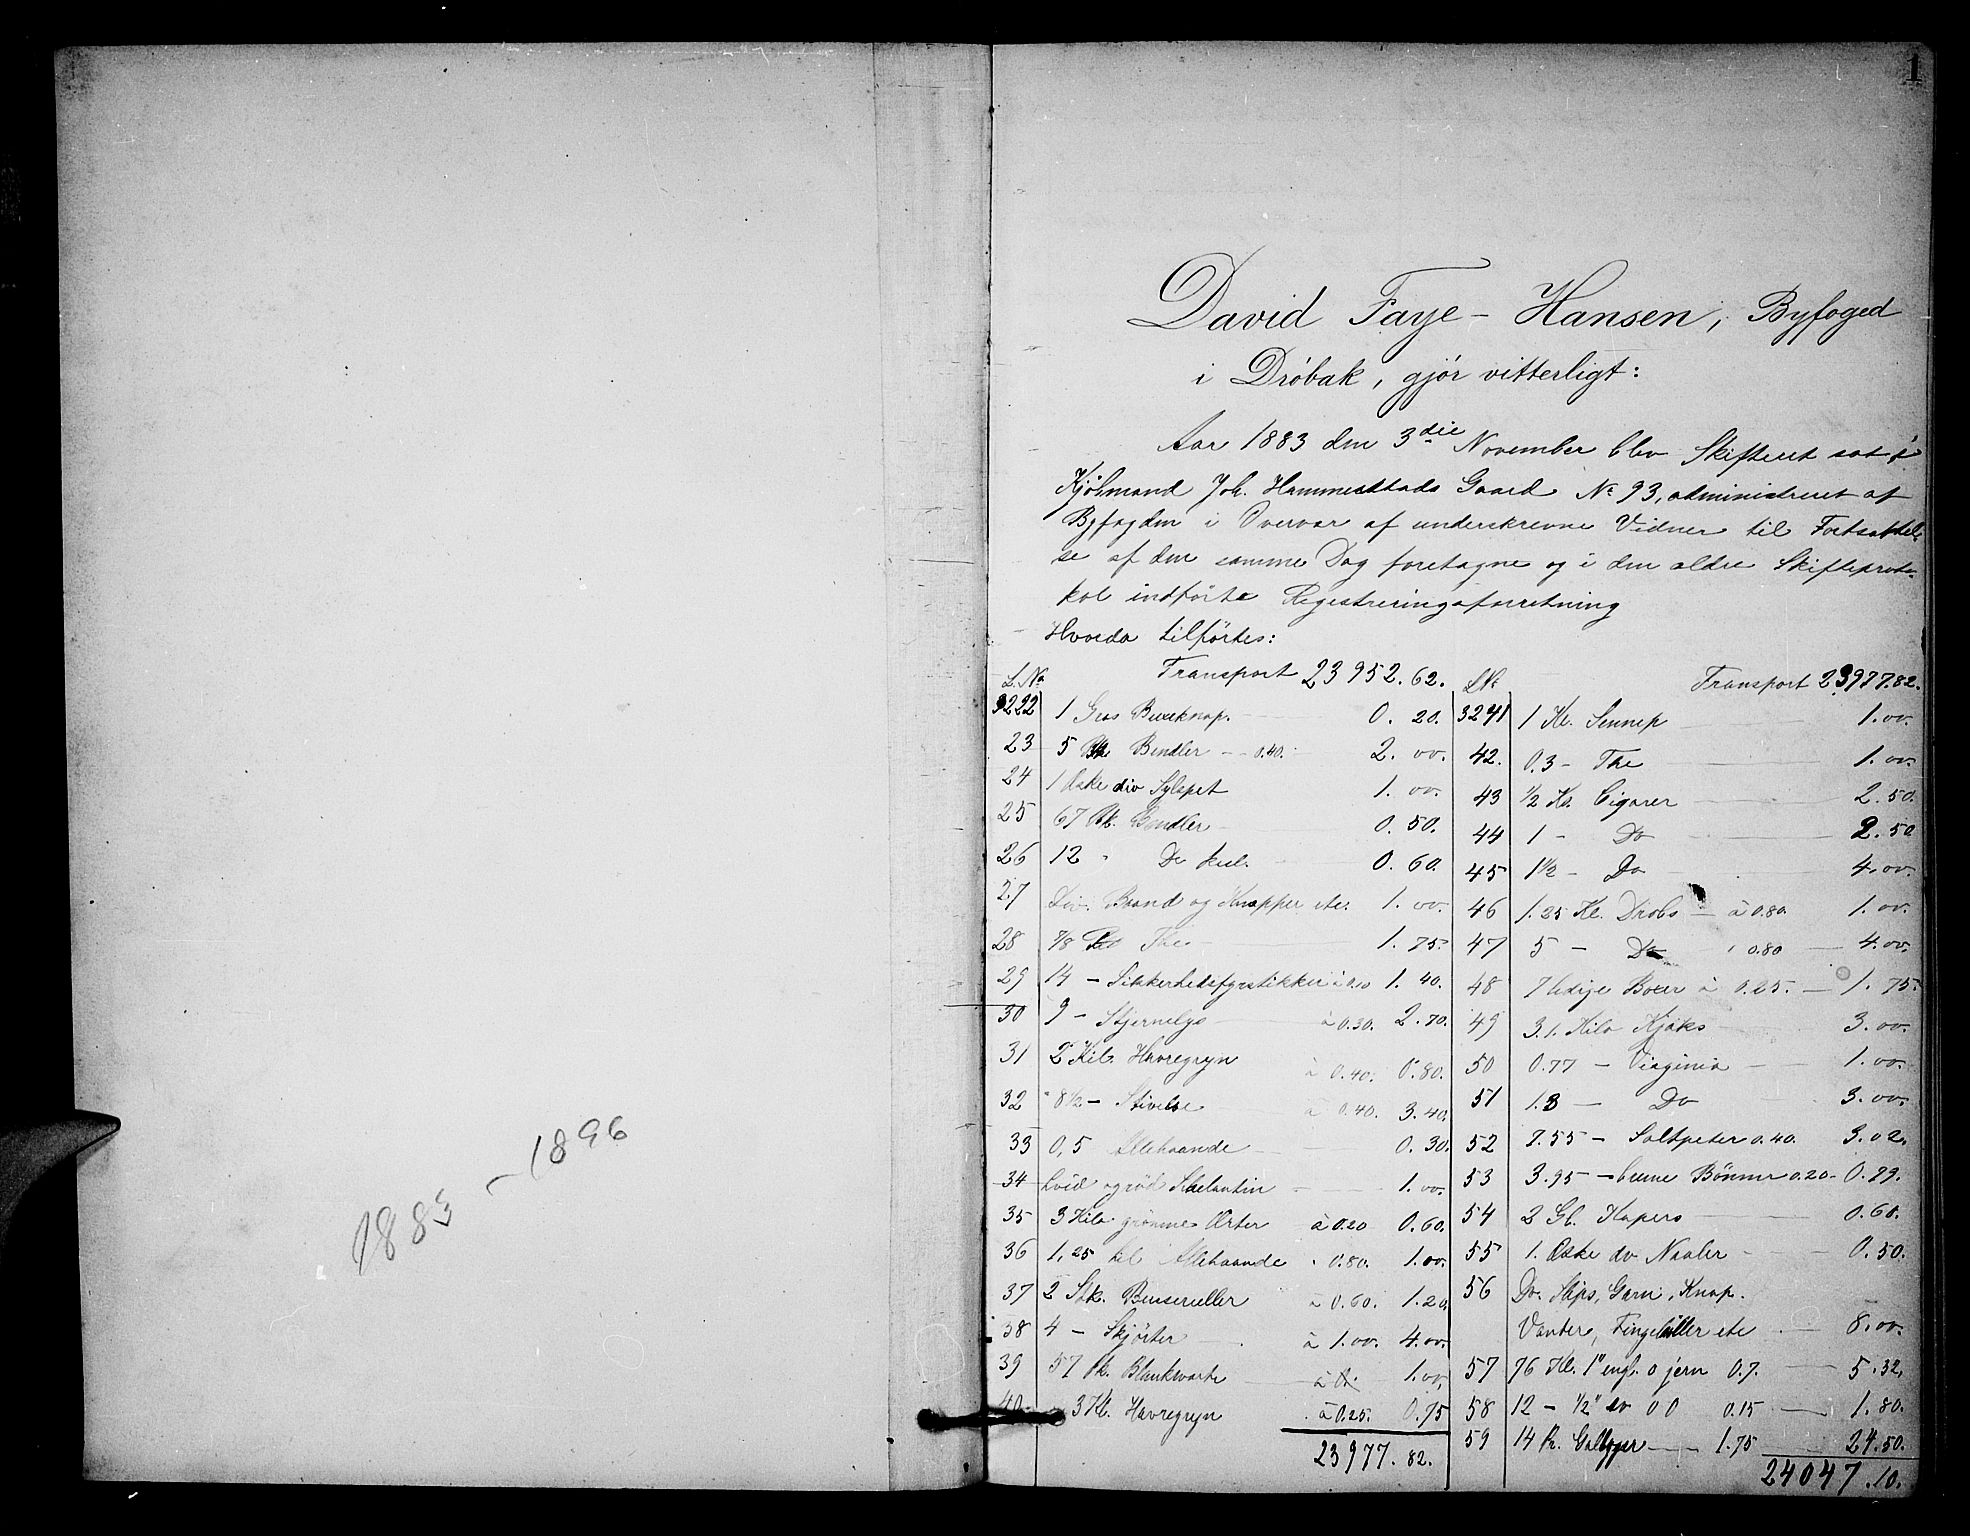 1883 - 1896
1
David Faye-Hansen, Byfoged
i Dröbak, gjör vitterligt:
Aar 1883 den 3die November blev Skifteret sat i
Kjöbmand Joh. Hammerstads Gaard No 93, administreret af
Byfogden i Overvær af underskrevne Vidner til Fortsættel-
se af den samme Dag foretagne og i den ældre Skifteproto-
kol indförte Registreringsforretning
Hvorda tilförtes:
L. No Transport 23952.62.
3222 1 Gros Buxeknap. 0. 20.
23 5 Bendler 0.40. 2. 00.
24 1 Æske div 1. 00.
25 67 Stk. Bendler 0. 50.
26 12 " Do 0. 60.
27 Div. Baand og Knapper etc. 1. 00.
28 7/8 The 1. 75.
29 14 - Sikkerhedsfyrstikker à 0.10 1. 40.
30 9 - Stjernelys à 0.30. 2.70.
31 2 Kilo Havregryn à 0.40. 0.80.
32 8 1/2 - Stivelse à 0.40. 3.40.
33 0,5 Allehaande 0.30.
34 hvid og röd 1.00.
35 3 Kilo grönne Ærter à 0.20 0.60.
36 1,25 Kil Allehaande " 0.80. 1.00.
37 2 Stk. Busseruller à 0.60. 1.20.
38 4 - Skjörter à 1.00. 4.00.
39 57 Pk. Blanksværte 1.00.
40 3 Kl. Havregryn à 0.25. 0.75
23977.82.
L No Transport 23977.82.
3241 1 Kl. Sennep 1.00.
42. 0.3 - The 1.00.
43 1/2 Ks. Cigarer 2.50.
44 1 - Do 2.50
45 1 1/2 - Do 4.00.
46 1.25 Kl. Drobs à 0.80. 1.00.
47 5 - Do " 0.80 4.00.
48 7 ledige à 0.25. 1.75.
49 3.1. Kilo Kjæks 3.00.
50 0.77 - Virginia 1.00.
51 1.3 - Do 3.00.
52 7.55 - Saltpeter 0.40. 3.02.
53 3.95 - Bönner 0.20. 0.79.
54 2 Gl. Kapers 0.60.
55 1. Æske do Naaler 0.50.
56 Do. Slips, Garn, Knap.
Vanter, Fingeböller etc 8.00.
57 76 Kl. 1" engl. o jern 0.7. 5.32.
58 12 - 1/2" do 0 0 0.15 1.80.
59 14 Pr. 1.75 24.50.
24047.10.